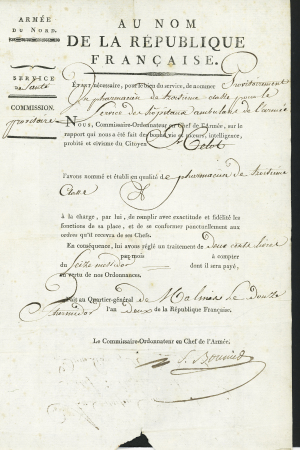 ARMÉE
DU NORD.
SERVICE
de Santé
COMMISSION.
provisoire
AU NOM
DE LA RÉPUBLIQUE
FRANÇAISE.
ÉTANT nécessaire, pour le bien du service, de nommer Provisoirement
un pharmacien de troisieme classe pour le
service des hôpitaux ambulans de l'armée
NOUS, Commissaire-Ordonnateur en Chef de l'Armée, sur le
rapport qui nous a été fait des bonnes vie et mœurs, intelligence,
probité et civisme du Citoyen
l'avons nommé et établi en qualité de pharmacien de troisieme
classe
à la charge, par lui, de remplir avec exactitude et fidélité les
fonctions de sa place, et de se conformer ponctuellement aux
ordres qu'il recevra de ses Chefs.
En conséquence, lui avons réglé un traitement de deux cents livres
par mois à compter
du seize messidor dont il sera payé,
en vertu de nos Ordonnances.
Fait au Quartier-général de Malines le douze
thermidor l'an deux de la République Française.
Le Commissaire-Ordonnateur en Chef de l'Armée.